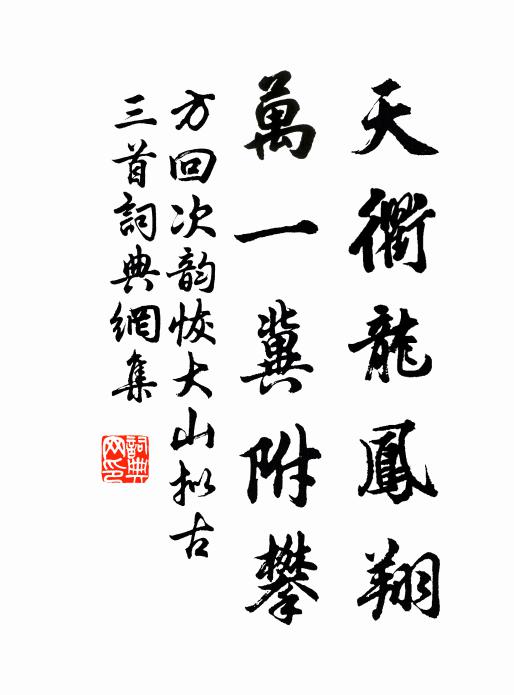 天衢龍鳳翔
萬一冀附攀
方回次韵恢大山拟古
三首詞典網集
詞典网印